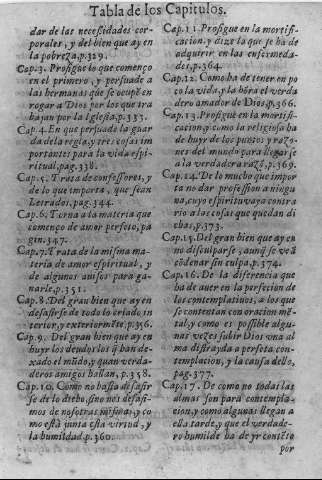 Tabla de los Capitulos.
dar de las necessidades cor-
porales, y del bien que ay en
la pobreza, p.329.
Cap.3. Prosigue lo que començo
en el primero, y persuade a
las hermanas que se ocupẽ en
rogar a Dios por los que tra
bajan por la Iglesia, p.333.
Cap.4. En que persuade la guar
da de la regla, y tres cosas im
portantes para la vida espi-
ritual, pag.338.
Cap.5. Trata de confessores, y
de lo que importa, que sean
Letrados, pag.344.
Cap.6. Torna a la materia que
començo de amor perfeto, pa
gin.347.
Cap.7. Trata de la misma ma-
teria de amor espiritual, y
de algunos avisos para ga-
narle, p.351.
Cap.8. Del gran bien que ay en
desasirse de todo lo criado in
terior, y exteriormẽte, p.356.
Cap.9. Del gran bien que ay en
huyr los deudos los q̃ han de-
xado el mũdo, y quan verda-
deros amigos hallan, p.358.
Cap.10. Como no basta desasir
se de lo dicho, sino nos desasi-
mos de nosotras mismas, y co
mo està junta esta virtud, y
la humildad, p.360.
Cap.11. Prosigue en la mortifi-
cacion, y dize la que se ha de
adquirir en las enfermeda-
des, p.364.
Cap.12. Como ha de tener en po
co la vida, y la hõra el verda
dero amador de Dios, p.366.
Cap.13. Prosigue en la mortifi-
cacion, y como la religiosa ha
de huyr de los puntos y razo-
nes del mundo para llegarse
a la verdadera razõ, p.369.
Cap.14. De lo mucho que impor
ta no dar profession a ningu
na, cuyo espiritu vaya contra
rio a las cosas que quedan di
chas, p.373.
Cap.15. Del gran bien que ay en
no disculparse, aunq̃ se veã
cõdenar sin culpa, p.374.
Cap.16. De la diferencia que
ha de auer en la perfecion de
los contemplatiuos, a los que
se contentan con oracion mẽ-
tal, y como es possible algu-
nas vezes subir Dios vna al
ma distrayda a perfeta con-
templacion, y la causa dello,
pag.377.
Cap.17. De como no todas las
almas son para contempla-
cion, y como algunas llegan a
ella tarde, y que el verdade-
ro humilde ha de yr contẽto
por